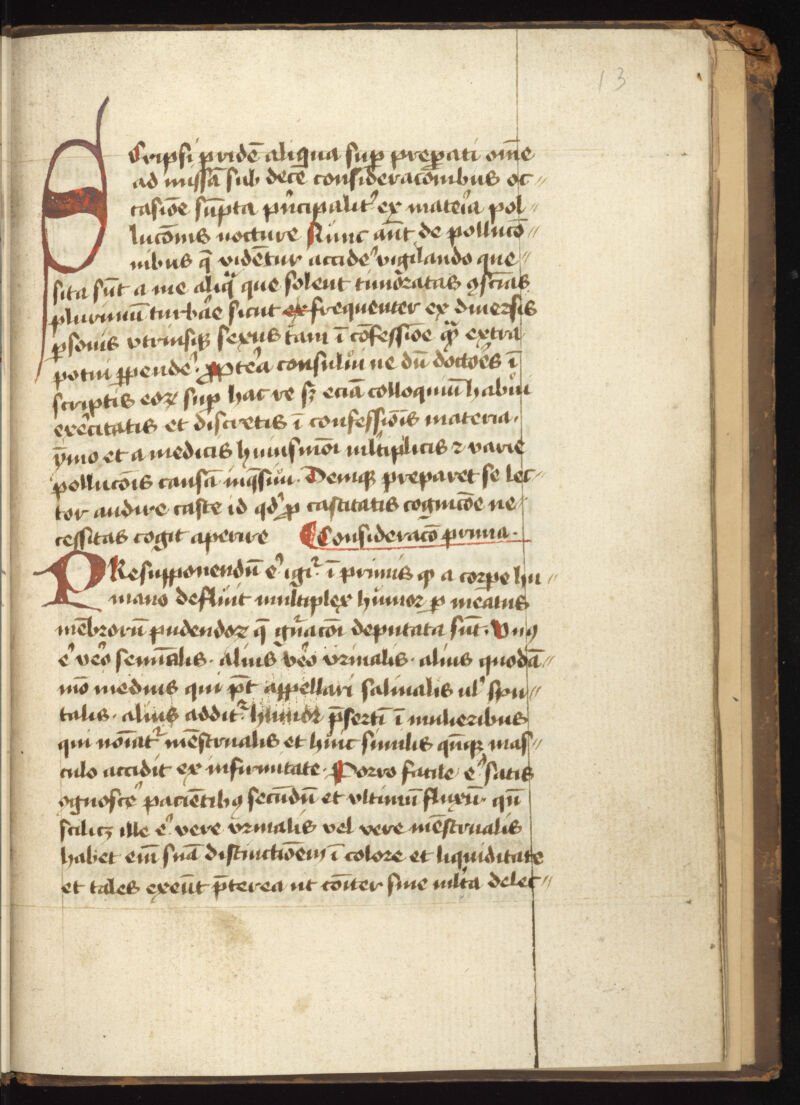 13
SCripsi pridē aliqua sup prepati oīne
ad missā sub decē consideracōnibus oc//
casiōe sūpta pⁱncipalitʾ ex mateʳia pol//
lucōnis nocturē Nunc aūt de pollucō//
nibus q̄ vidētur accideʳ vigilando que//
sita sūt a me aliqⁱ que solent timoratas ꝯscīas
plurimū turbaʳe sicut frequenter ex diuersis
psonis vtriusqꝫ sexus tam ī cōfessiōe qᵃ extra
potui ꝑpendeʳ Proptʳea consului ne dū doctoēs ī
scriptis eoꝝ sup hac re sꝫ eciā colloquiū habui
exeʳcitatis et discretis ī confessiōis materia
ymo et a medicis huiusmōi ml̄tiplicis ⁊ varie
pollucōis causā inq̄siui · Deniqꝫ preparet se lec//
tor audire caste id qd̾ ꝓ castitatis cognicōe ne
cessitas cogit aperire ¶ Consideracō prima ·
PResupponendū ēʾ igiʳ ī primis qꝫ a corpe hu//
mano defluit multiplex humor p meatus
mēbrorū pudendoꝝ q̄ gn̄acōi deputata sūt · Vnꝰ
ēʾ veʳo semīalis · Alius veʳo vrinalis · alius quodā//
mō medius qui pt̄ appellari saliualis ul̾ spu//
talis · alius additʳ humor p̄sertī ī mulieribus
qui noīatʳ mēstrualis et huic similis qn̄qꝫ mas//
culo accidit ex infirmitate · Porro facile ēʾ satis
ognosceʳ paciētibꝰ secūdū et vltimū fluxū · qn̄
scilicꝫ ille ēʾ vere vrinalis vel vere mēstrualis
habet eīm suā distinctiōem ī colore et liquiditate
et tales exeūt p̄terea ut cōiter sine ml̄ta delec//